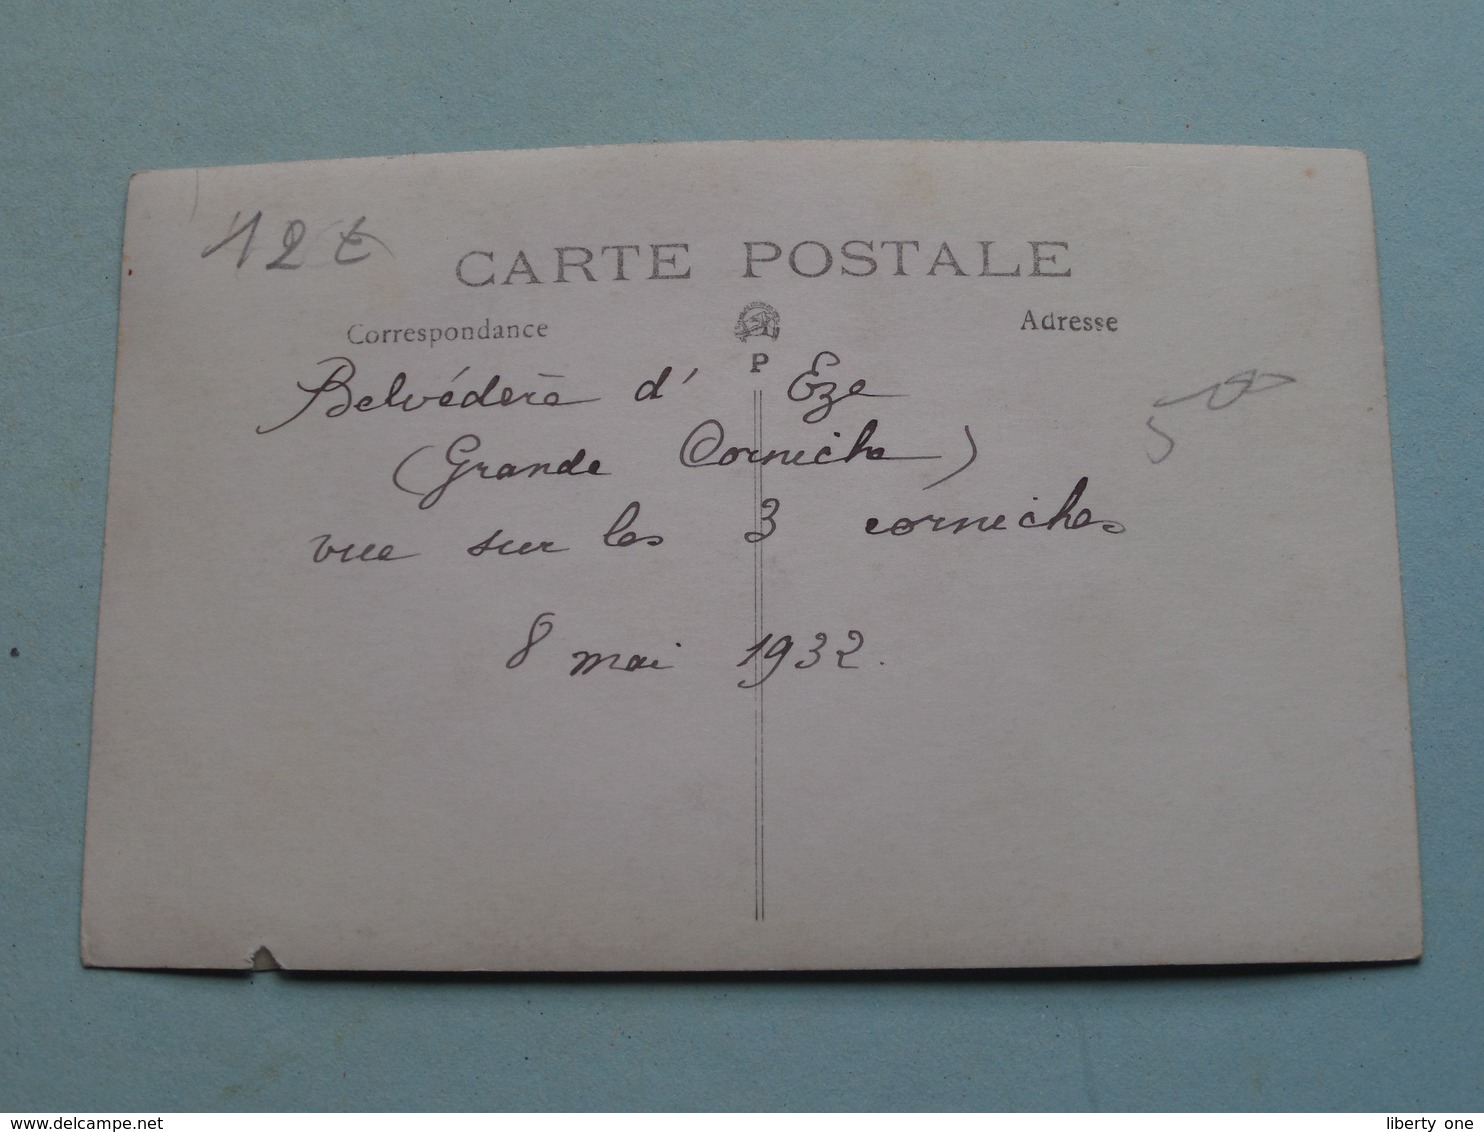 12 €
CARTE POSTALE
Correspondance
Adresse
P
Belvédère d' Eze
(Grande Corniche)
vue sur les 3 corniches
8 mai 1932.
delcampe.net
liberty one